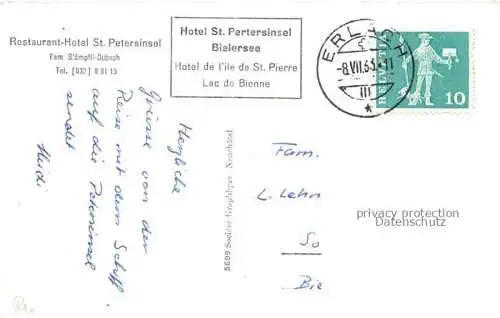 Restaurant-Hotel St. Petersinsel
Fam. Stämpfli-Dubach
Tel. (032) 8 81 15
Hotel St. Pertersinsel
Bielersee
Hotel de l'île de St. Pierre
Lac de Bienne
ERLACH
-8.VII.63.-11
III
HELVETIA
10
Herzliche
Grüsse von der
Reise mit dem Schiff
auf die Petersinsel
sendet
Heidi
5699 Société Graphique Neuchâtel
Fam.
L. Lehn
So
Bie
privacy protection
Datenschutz